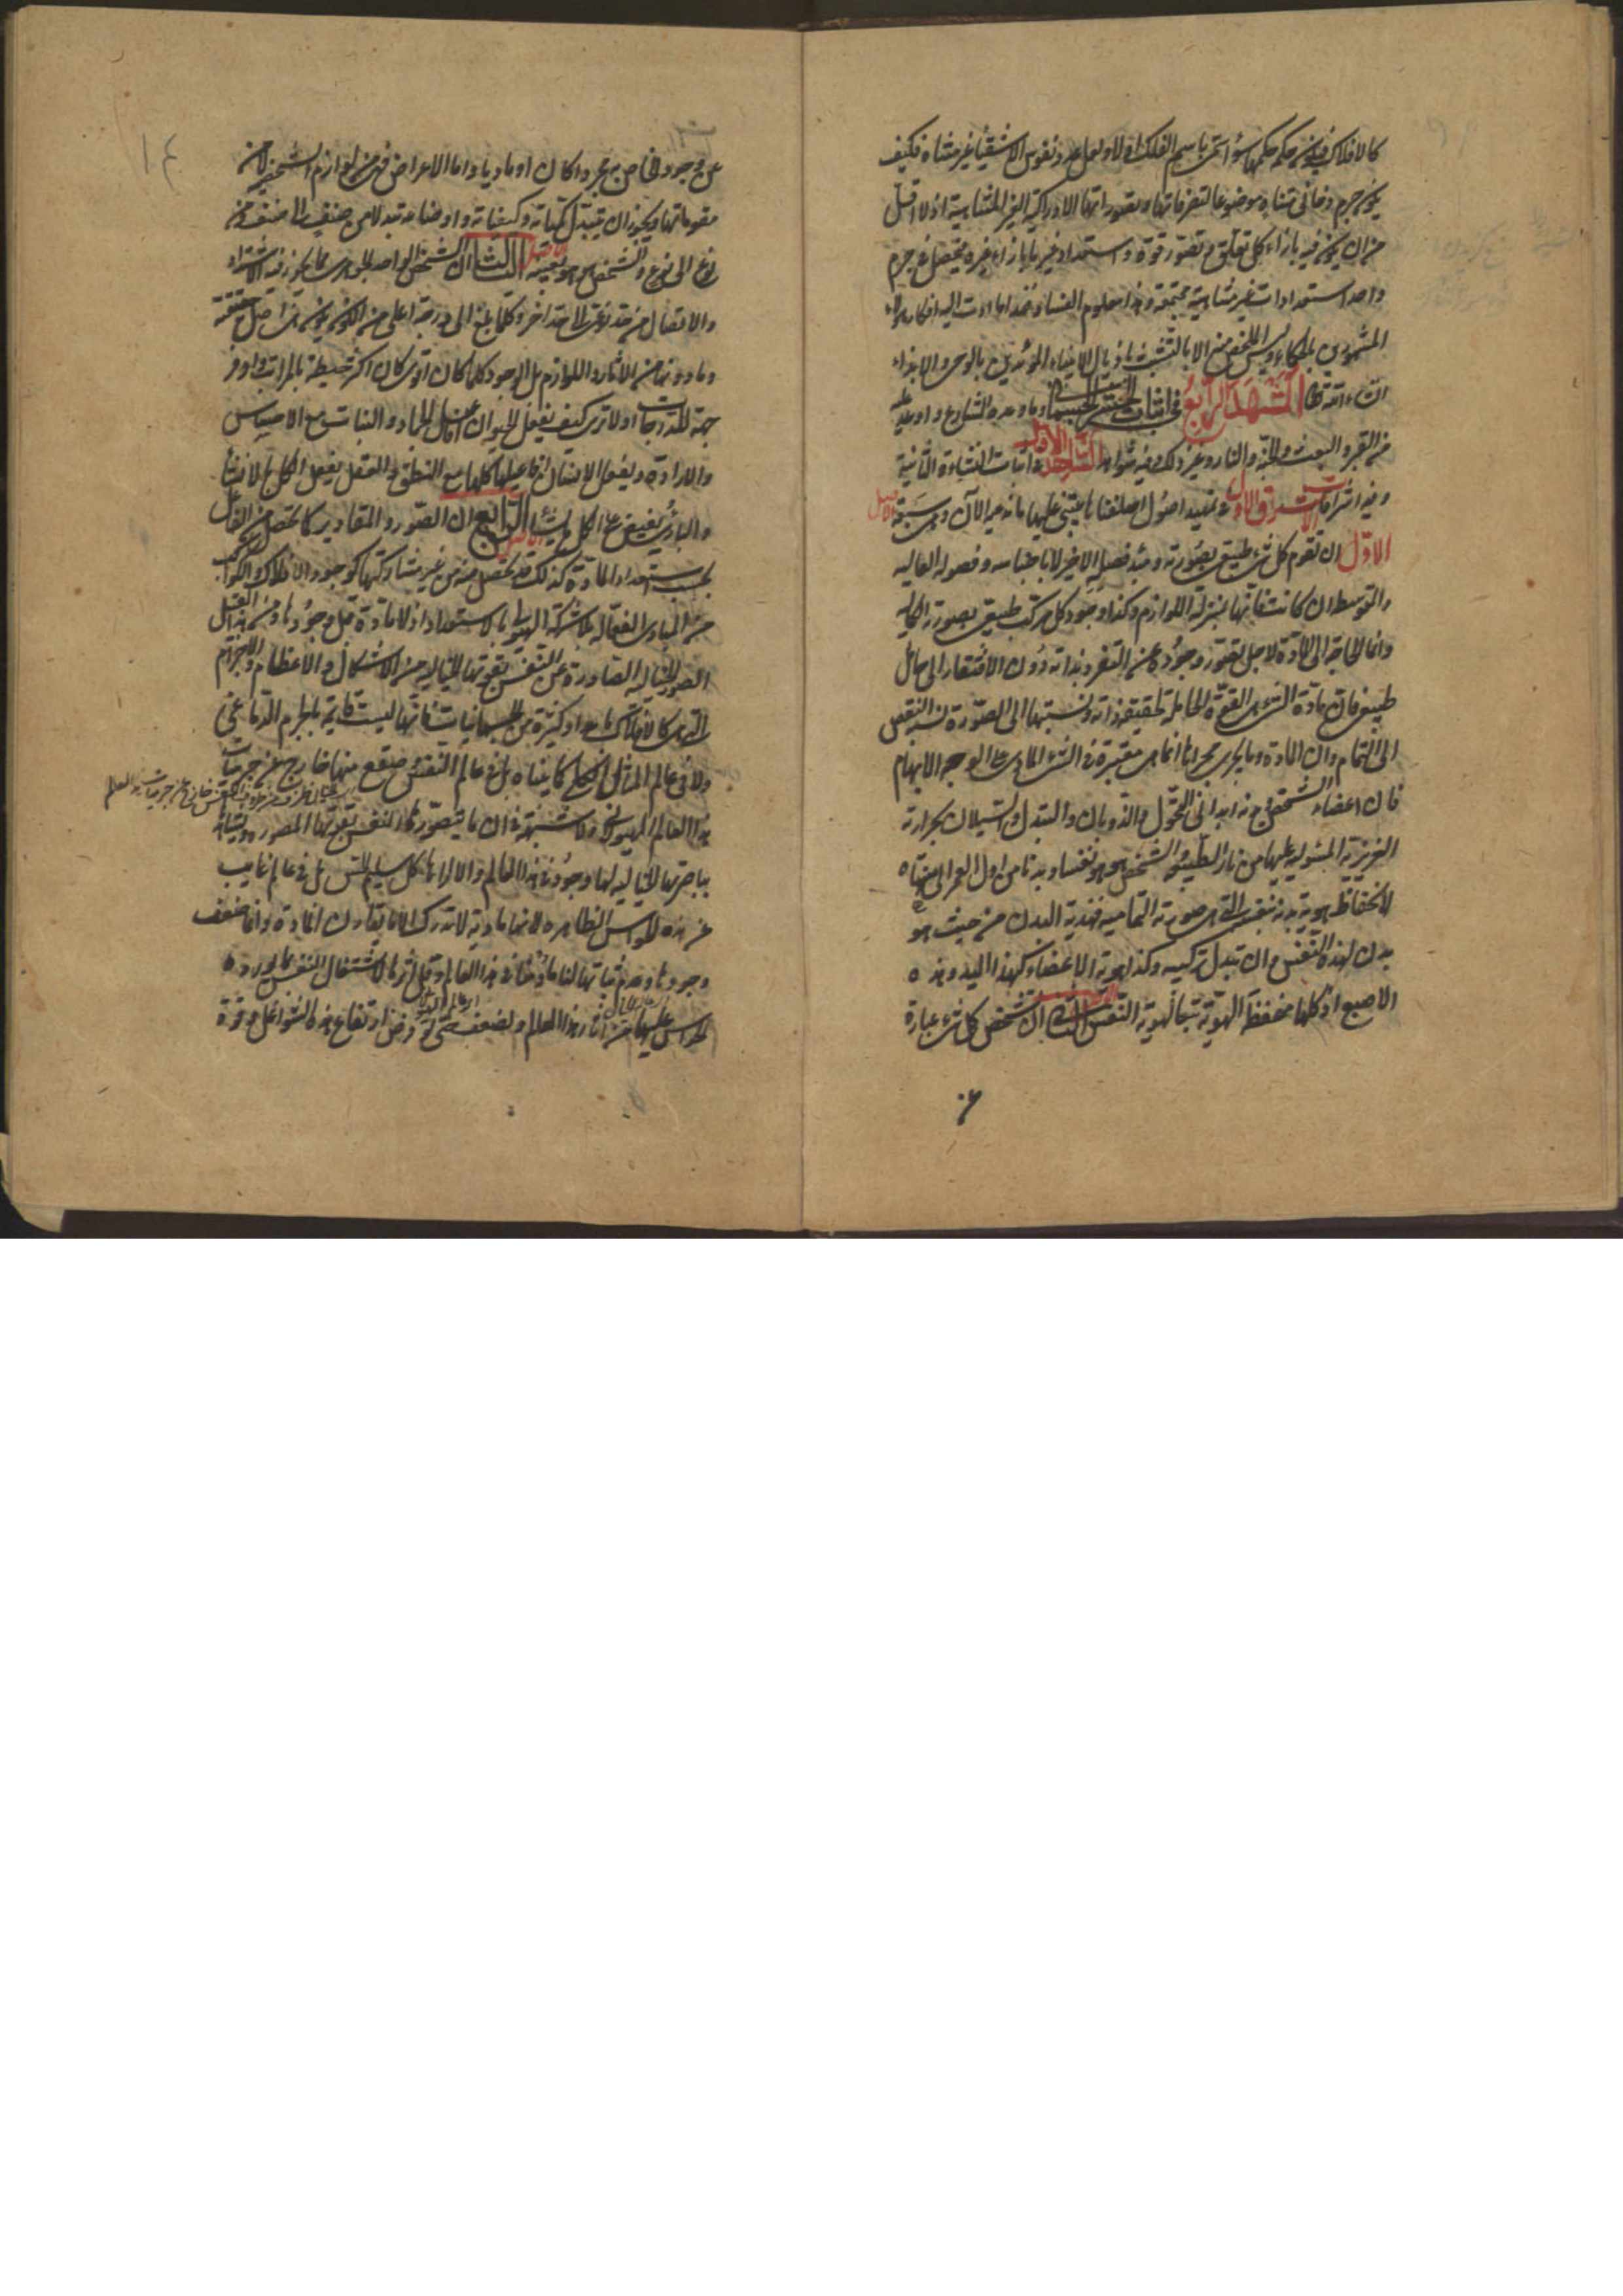 كالافلاك فيكون حكمه حكمها سواء سمى باسم الفلك ام لا ولعل عدد نفوس الاشقياء غير متناه فكيف
يكون جرم دخانى متناه موضوعا لتصرفاتها وتصوراتها الادراكية الغير المتناهية اذ لا اقل
من ان يكون فيه بازاء كل تعلق وتصور قوة واستعداد غير ما بازاء غيره فيحصل فى جرم
واحد استعدادات غير متناهية مجتمعة وهذا معلوم الفساد فهذا ما ادت اليه افكار هؤلاء
المشهورين بالحكماء وليس المخلص منه الا بالتشبث باذيال الانبياء المؤيدين بالوحى والانباء
ان شاء الله تعالى المشهد الرابع فى اثبات الحشر الجسمانى وما وعده الشارع واوعد عليه
من القبر والبعث والجنة والنار وغير ذلك وفيه شواهد الشاهد الاول فى اثبات النشاة الثانية
وفيه اشراقات الاشراق الاول فى تمهيد اصول اصلناها يبتنى عليها ما نحن الان وهى سبعة الاصل
الاول ان تقوم كل شىء طبيعى بصورته ومبدء فصله الاخير لا باجناسه وفصوله العالية
والمتوسطة ان كانت فانها بمنزلة اللوازم وكذا وجود كل مركب طبيعى بصورته الكمالية
وانما الحاجة الى المادة لاجل قصور وجوده عن التفرد بذاته دون الافتقار الى حامل
طبيعى فان مادة الشىء هى القوة الحاملة لحقيقة ذاته ونسبتها الى الصورة نسبة النقص
الى التمام وان المادة وما يجرى مجراها انما هى معتبرة فى الشىء المادى على الوجه الابهام
فان اعضاء الشخص منه ابدا فى التحول والذوبان والتبدل والسيلان بحرارته
الغريزية المستولية عليها من نار الطبيعة والشخص هو هو نفسا وبدنا من اول العمر الى منتهاه
لانحفاظ هوية بدنه بنفسه التى هى صورته التمامية فهذية البدن من حيث هو
بدن لهذه النفس وان تبدل تركيبه وكذا هوية الاعضاء كهذا اليد وهذه
الاصبع اذ كلها منحفظ الهوية تبعا لهوية النفس الاصل الثانى ان تشخص كل شىء عبارة
عن وجوده الخاص به مجردا كان او ماديا واما الاعراض فهى من لوازم الشخص لا من
مقوماتها ويجوز ان يتبدل كمياته وكيفياته واوضاعه تبدلا من صنف الى صنف ومن
نوع الى نوع والشخص هو هو بعينه الاصل الثالث ان الشخص الواحد الجوهرى مما يجوز فيه الاشتداد
والاتصال من حد نوعى الى حد اخر وكلما بلغ الى درجة اعلى من الكون يكون هى اصل حقيقته
وما دونها من الاثار واللوازم بل الوجود كلما كان اقوى كان اكثر حيطة بالمراتب واوفر
جمعا للدرجات اولا ترى كيف يفعل الحيوان افاعيل الجماد والنبات مع الاحساس
والارادة ويفعل الانسان افاعيلها كلها مع النطق والعقل يفعل الكل بالانشاء
والبارى يفيض على الكل ما يشاء الاصل الرابع ان الصور والمقادير كما تحصل من الفاعل
بحسب استعداد المادة كذلك قد تحصل منه من غير مشاركتها كوجود الافلاك والكواكب
من المبادى الفعالة بلا شركة الهيولى بالاستعداد اذ لا مادة قبل وجودها ومن هذا القبيل
الصور الخيالية الصادرة عن النفس بقوتها الخيالية من الاشكال والاعظام والاجرام
التى هى كالافلاك بل هى اعداد كثيرة من الجسمانيات فانها ليست قائمة بالجرم الدماغى
ولا فى عالم المثال الكلى كما بيناه بل فى عالم النفس وصقع منها خارج عن جرميات
هذا العالم الهيولانى ولا شبهة فى ان ما يتصورها النفس بقوتها المصورة ويشاهد
بباصرتها الخيالية لها وجود لا فى هذا العالم والا لراها كل سليم الحس بل فى عالم غايب
عن هذه الحواس الظاهرة لانها مادية لا تدرك الا ما يقارن المادة وانما ضعف
وجودها وعدم ثباتها لنا ما دمنا فى هذا العالم وقل اثرها لاشتغال النفس بما يورده
الحواس عليها من اثار هذا العالم ولضعف حتى لو فرض ارتفاع هذه الشواغل وقوة